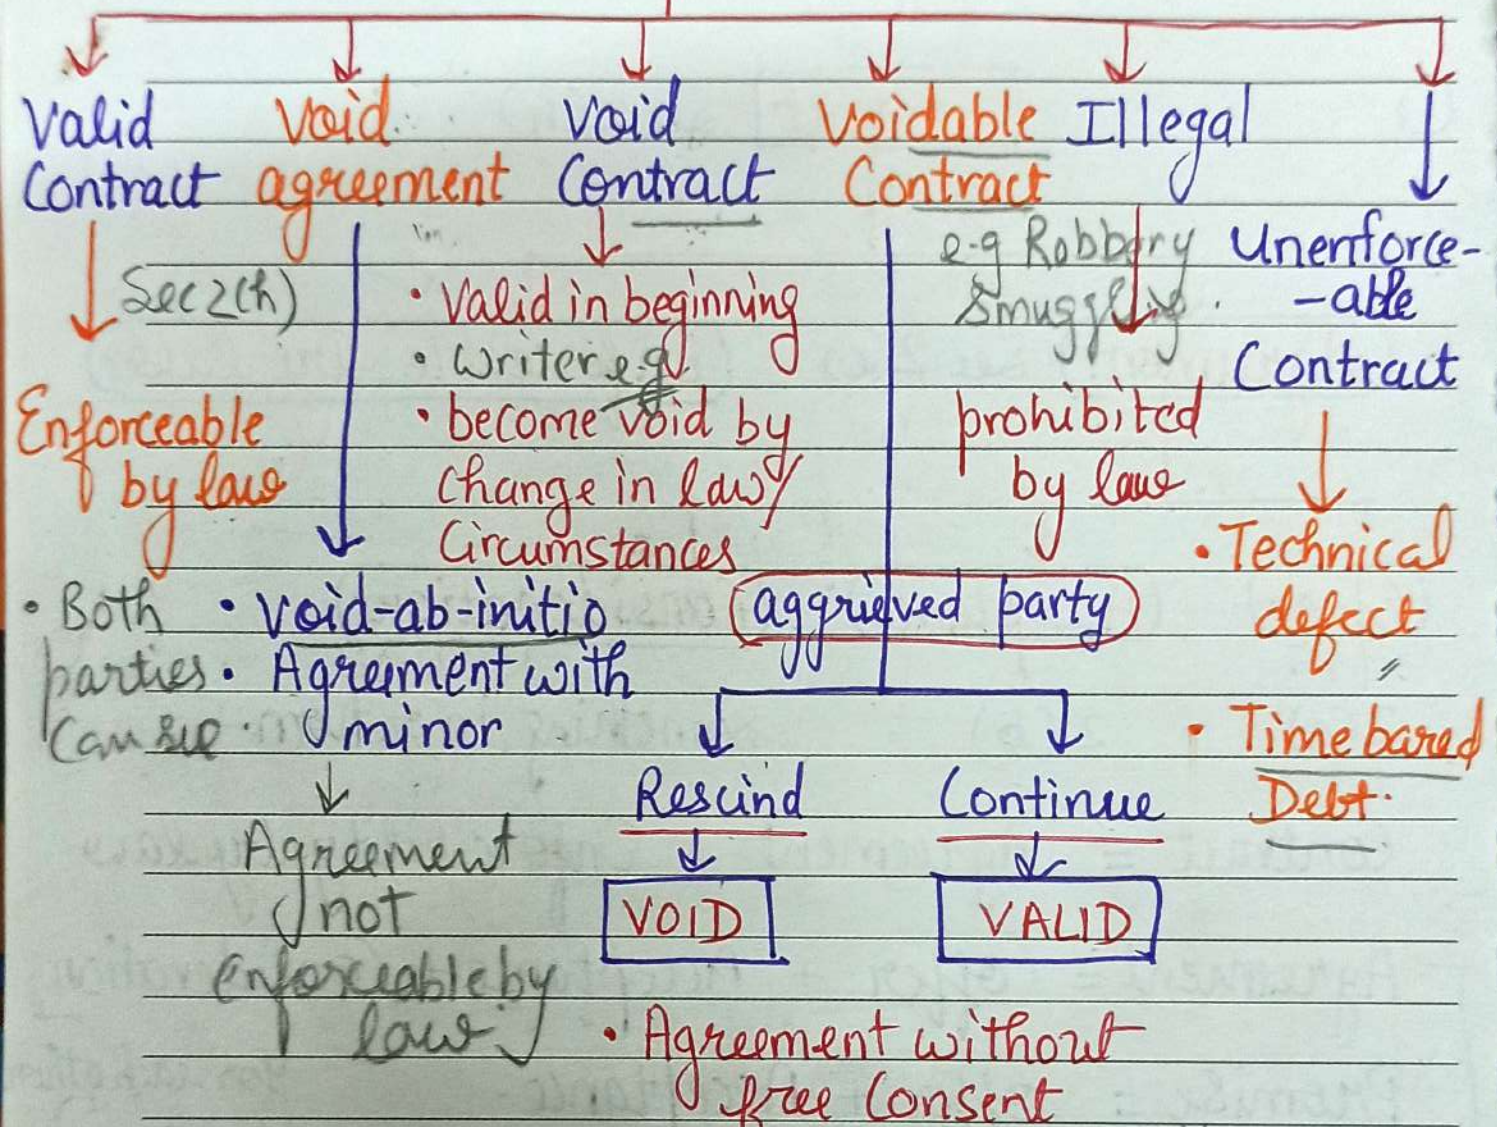 Valid
Contract
Sec 2(h)
Enforceable
by law
• Both
parties
Can sue
Void
agreement
• Void-ab-initio
• Agreement with
minor
Agreement
not
Enforceable by
law
Void
Contract
• Valid in beginning
• Writer e.g
• become void by
change in law/
Circumstances
Voidable
Contract
aggrieved party
Rescind
Continue
VOID
VALID
• Agreement without
free Consent
Illegal
e.g Robbery
Smuggling.
prohibited
by law
Unenforce-
-able
Contract
• Technical
defect
• Time bared
Debt.